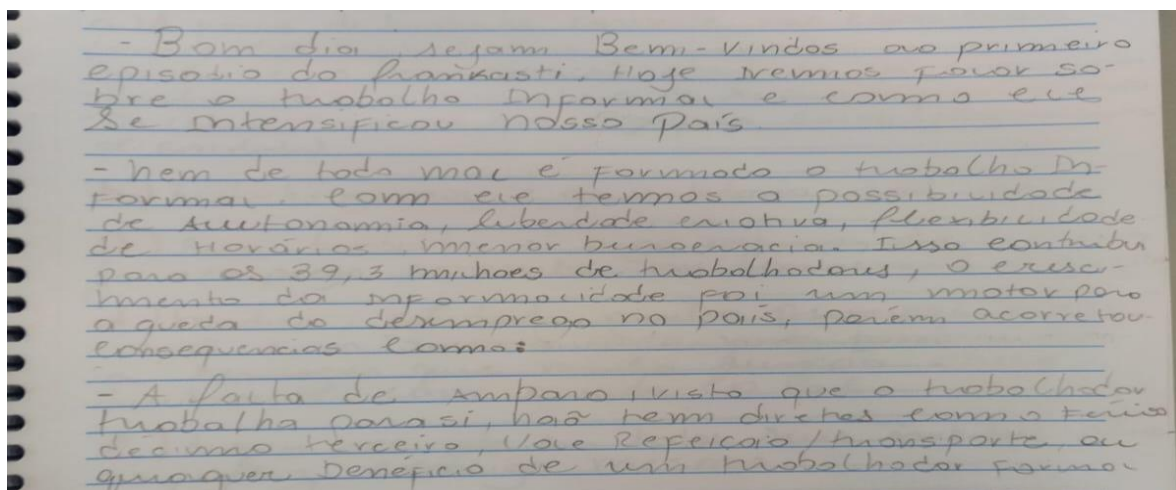 - Bom dia, sejam Bem-vindos ao primeiro
episodio do Frankasti. Hoje iremos falar so-
bre o trabalho informal e como ele
se intensificou nosso País.
- nem de todo mal é formado o trabalho in-
formal. Com ele temos a possibilidade
de Autonomia, liberdade criativa, flexibilidade
de Horários, menor burocracia. Isso contribu
para os 39,3 milhoes de trabalhadores, o cresci-
mento da informalidade foi um motor para
a queda do desemprego no país, porém acorretou
consequencias como:
- A falta de Amparo, visto que o trabalhador
trabalha para si, naõ tem direitos como ferias
decimo terceiro, Vale Refeicaõ/transporte ou
qualquer beneficio de um trabalhador formal